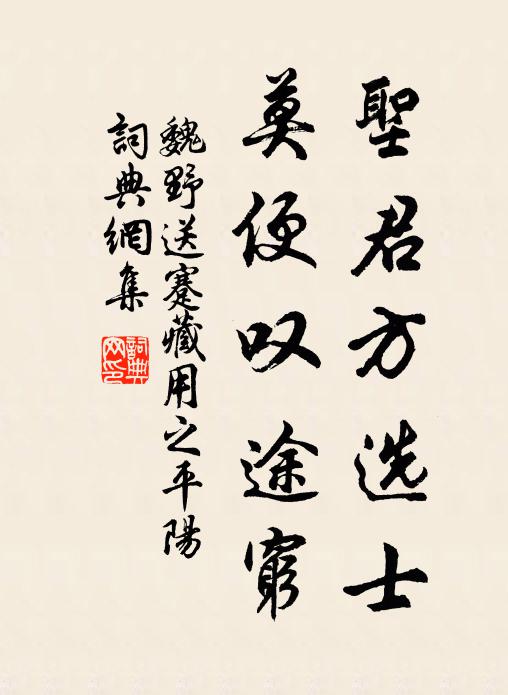 聖君方选士
莫便叹途窮
魏野送蹇藏用之平陽
詞典網集
詞典網印